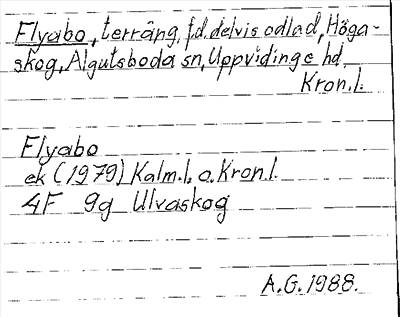 Flyabo, terräng, f.d. delvis odlad, Höga-
skog, Algutsboda sn, Uppvidinge hd
Kron.l.
Flyabo
ek (1979) Kalm.l. o. Kron.l.
4F 9g Ulvaskog
A.G. 1988.